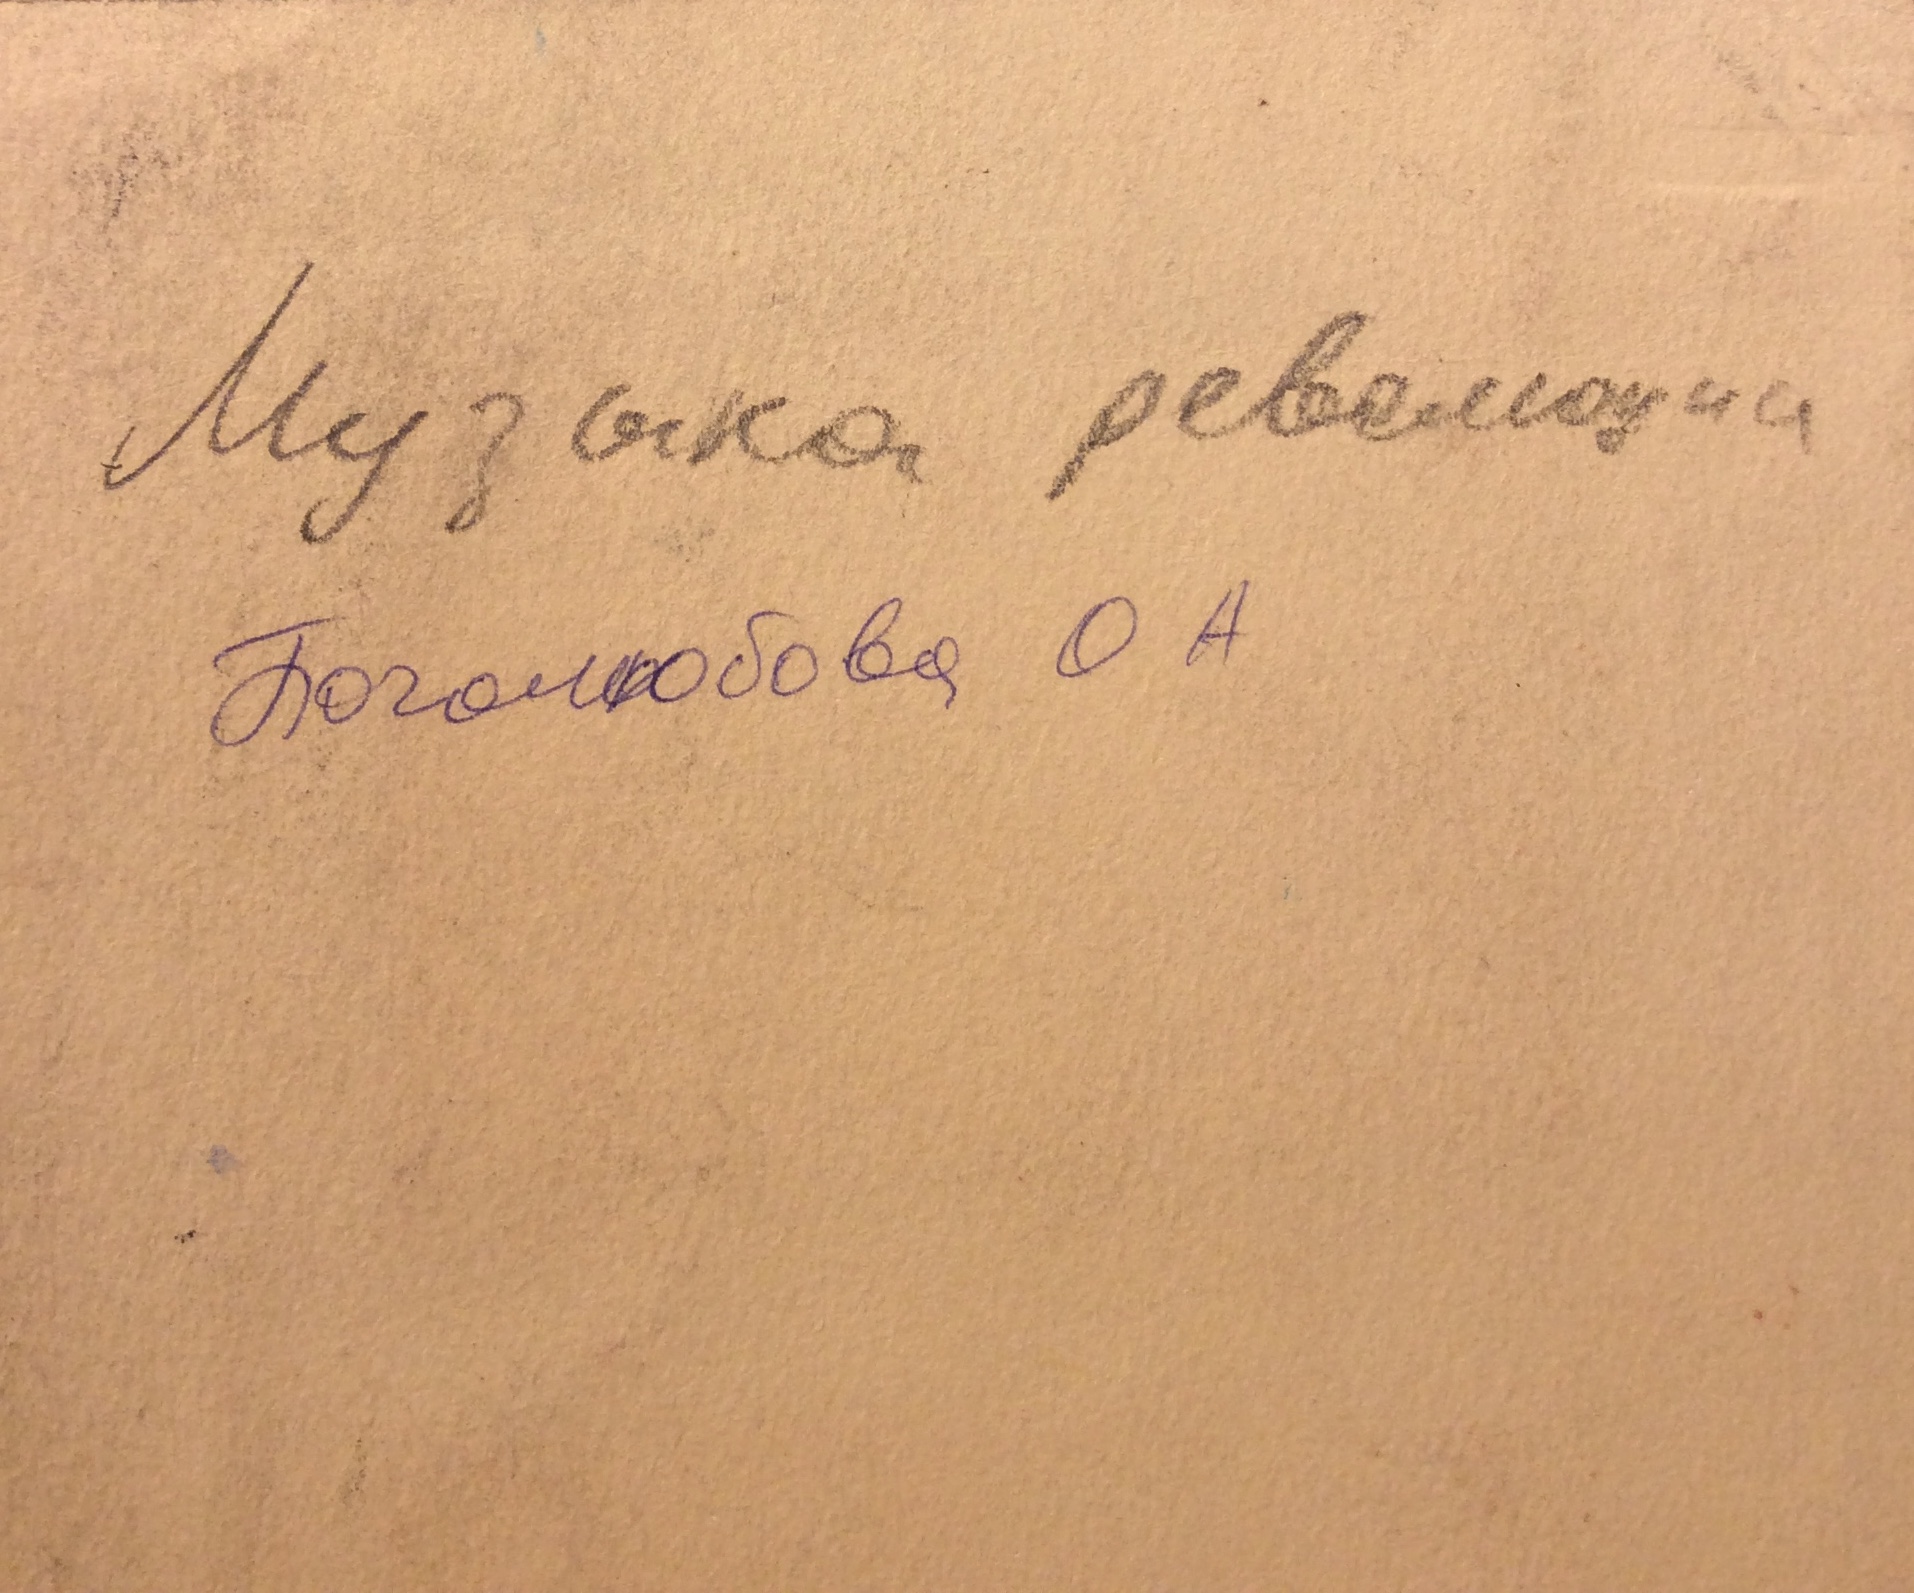 Музыка революции
Боголюбова О А